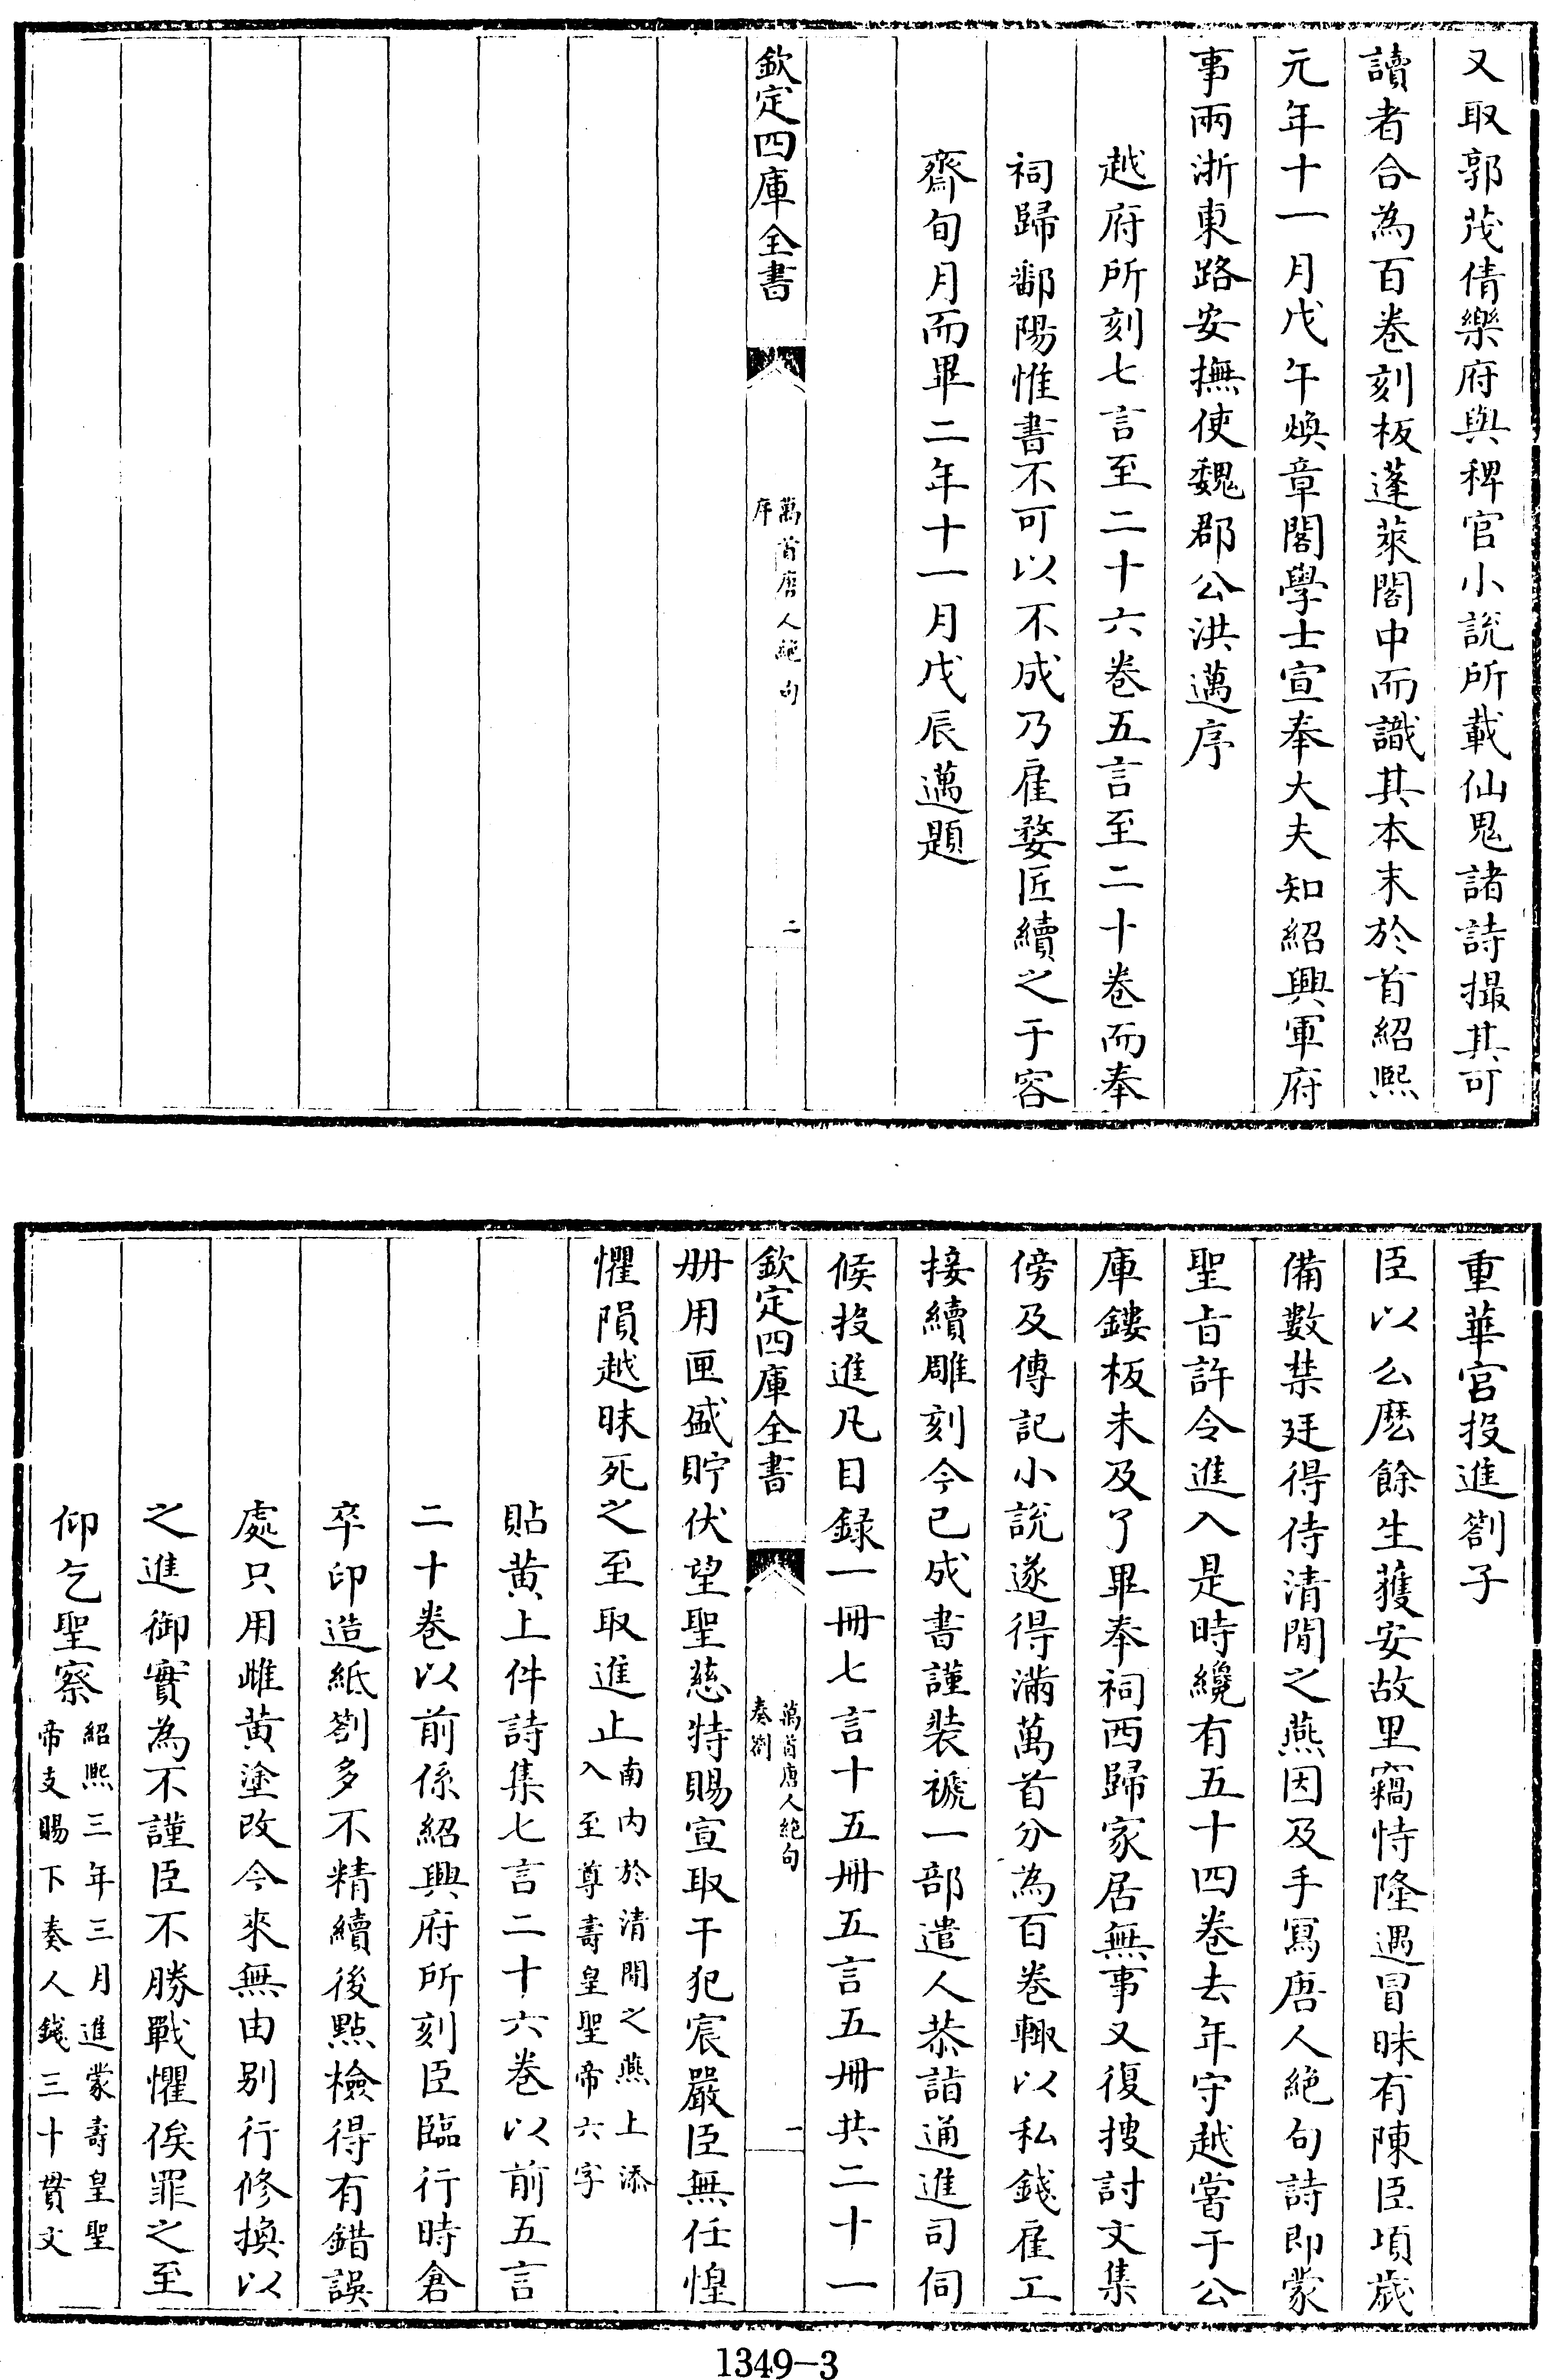 又取郭茂倩樂府與稗官小說所載仙鬼諸詩撮其可
讀者合為百卷刻板蓬萊閣中而識其本末於首紹熙
元年十一月戊午煥章閣學士宣奉大夫知紹興軍府
事兩浙東路安撫使魏郡公洪邁序
越府所刻七言至二十六卷五言至二十卷而奉
祠歸鄱陽惟書不可以不成乃雇婺匠續之于容
齋旬月而畢二年十一月戊辰邁題
欽定四庫全書
萬首唐人絶句
序
二
重華宮投進劄子
臣以么麽餘生獲安故里竊恃隆遇冒昧有陳臣項歲
備數禁廷得侍清閒之燕因及手寫唐人絶句詩即蒙
聖旨許令進入是時纔有五十四卷去年守越嘗于公
庫鏤板未及了畢奉祠西歸家居無事又復搜討文集
傍及傳記小說遂得滿萬首分為百卷輙以私錢雇工
接續雕刻今已成書謹裝褫一部遣人恭詣通進司伺
候投進凡目録一冊七言十五冊五言五冊共二十一
欽定四庫全書
萬首唐人絶句
奏劄
一
冊用匣盛貯伏望聖慈特賜宣取干犯宸嚴臣無任惶
懼隕越昧死之至取進止南內於清閒之燕上添
入至尊壽皇聖帝六字
貼黄上件詩集七言二十六卷以前五言
二十卷以前係紹興府所刻臣臨行時倉
卒印造紙劄多不精續後點檢得有錯誤
處只用雌黄塗改今來無由别行修換以
之進御實為不謹臣不勝戰懼俟罪之至
仰乞聖察紹熙三年三月進蒙壽皇聖
帝支賜下奏人錢三十貫文
1349-3